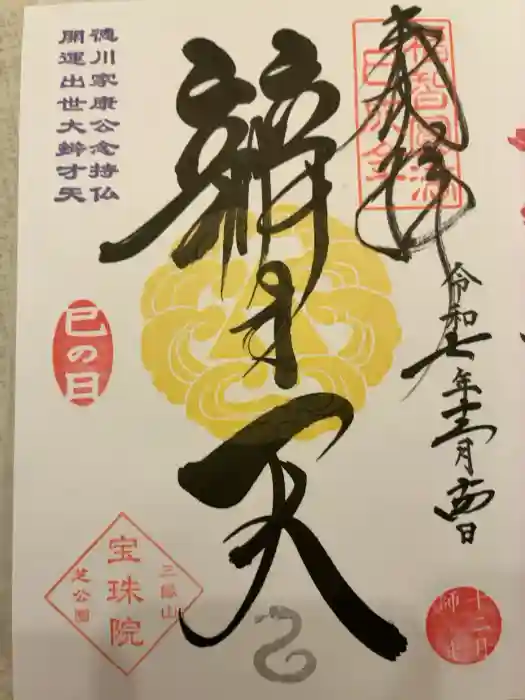 奉拝
福智圓満
巳成金
令和七年十二月十四日
辨才天
徳川家康公念持仏
開運出世大辨才天
巳の日
三縁山
宝珠院
芝公園
十二月
師走